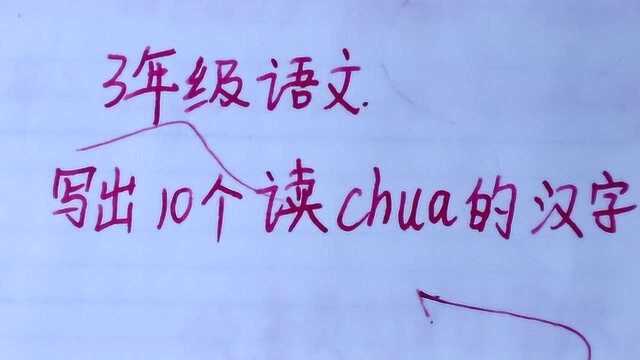 3年级语文.
写出10个读chua的汉字